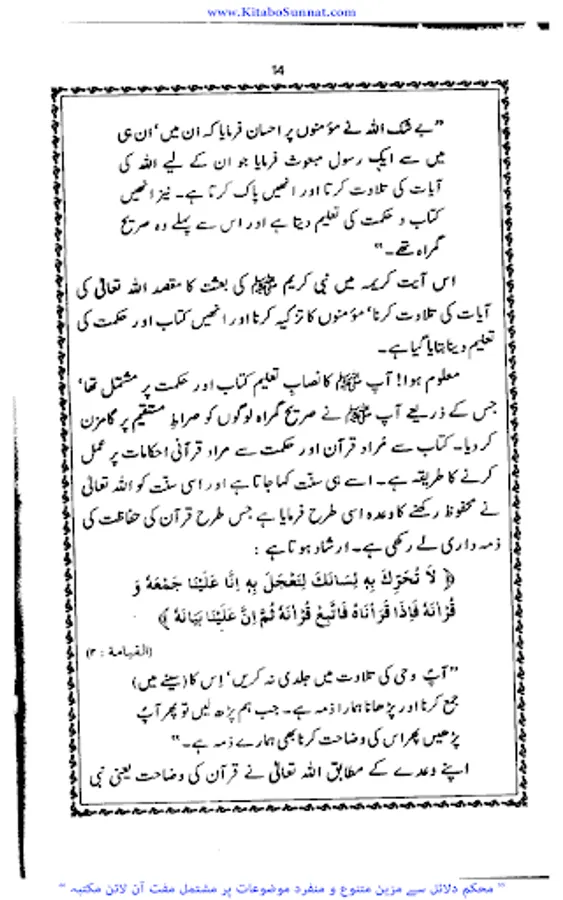 www.KitaboSunnat.com
14
”بے شک اللہ نے مؤمنوں پر احسان فرمایا کہ ان میں‘ ان ہی
میں سے ایک رسول مبعوث فرمایا جو ان کے لیے اللہ کی
آیات کی تلاوت کرتا اور انھیں پاک کرتا ہے۔ نیز انھیں
کتاب و حکمت کی تعلیم دیتا ہے اور اس سے پہلے وہ صریح
گمراہ تھے۔“
اس آیت کریمہ میں نبی کریم ﷺ کی بعثت کا مقصد اللہ تعالیٰ کی
آیات کی تلاوت کرنا‘ مؤمنوں کا تزکیہ کرنا اور انھیں کتاب اور حکمت کی
تعلیم دینا بتایا گیا ہے۔
معلوم ہوا! آپ ﷺ کا نصابِ تعلیم کتاب اور حکمت پر مشتمل تھا‘
جس کے ذریعے آپ ﷺ نے صریح گمراہ لوگوں کو صراطِ مستقیم پر گامزن
کر دیا۔ کتاب سے مُراد قرآن اور حکمت سے مراد قرآنی احکامات پر عمل
کرنے کا طریقہ ہے۔ اسے ہی سنّت کہا جاتا ہے اور اسی سنّت کو اللہ تعالیٰ
نے محفوظ رکھنے کا وعدہ اسی طرح فرمایا ہے جس طرح قرآن کی حفاظت کی
ذمہ داری لے رکھی ہے۔ ارشاد ہوتا ہے:
﴿ لاَ تُحَرِّكَ بِهِ لِسَانَكَ لِتَعْجَلَ بِهِ اِنَّ عَلَيْنَا جَمْعَهُ وَ
قُرْاٰنَهُ فَاِذَا قَرَاْنَاهُ فَاتَّبِعْ قُرْاٰنَهُ ثُمَّ اِنَّ عَلَيْنَا بَيَانَهُ ﴾
(القيامة : ۳)
”آپؐ وحی کی تلاوت میں جلدی نہ کریں‘ اِس کا (سینے میں)
جمع کرنا اور پڑھانا ہمارا ذمہ ہے۔ جب ہم پڑھ لیں تو پھر آپؐ
پڑھیں پھر اس کی وضاحت کرنا بھی ہمارے ذمہ ہے۔“
اپنے وعدے کے مطابق اللہ تعالیٰ نے قرآن کی وضاحت یعنی نبی
”محکم دلائل سے مزین متنوع و منفرد موضوعات پر مشتمل مفت آن لائن مکتبہ“